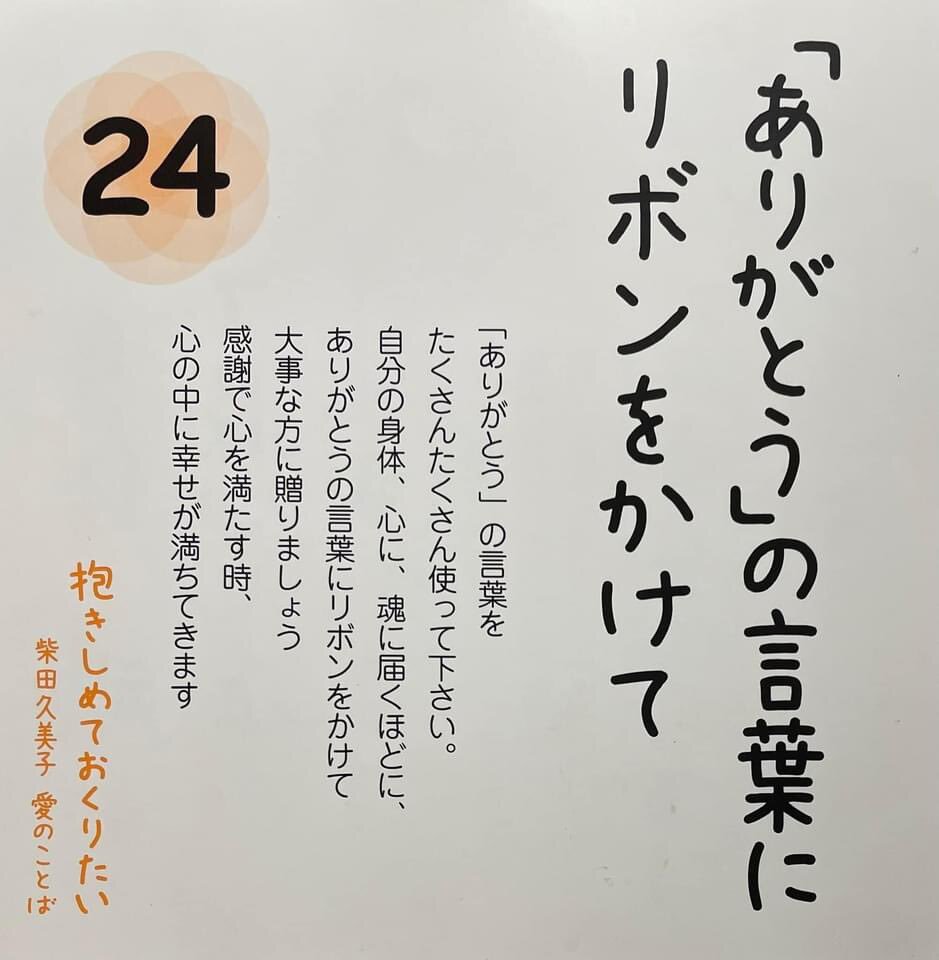 「ありがとう」の言葉に
リボンをかけて
24
「ありがとう」の言葉を
たくさんたくさん使って下さい。
自分の身体、心に、魂に届くほどに、
ありがとうの言葉にリボンをかけて
大事な方に贈りましょう
感謝で心を満たす時、
心の中に幸せが満ちてきます
抱きしめておくりたい
柴田久美子 愛のことば